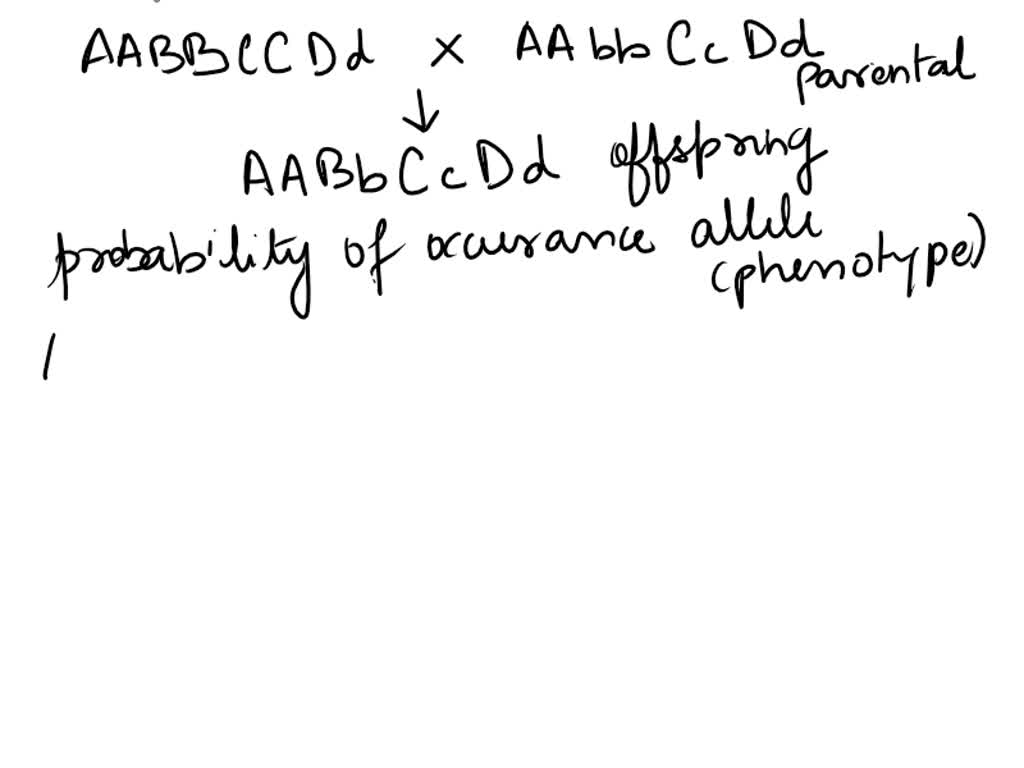 AABBCCDd x AAbbCcDd
parental
↓
AABbCcDd offspring
probability of occurance allele
(phenotype)